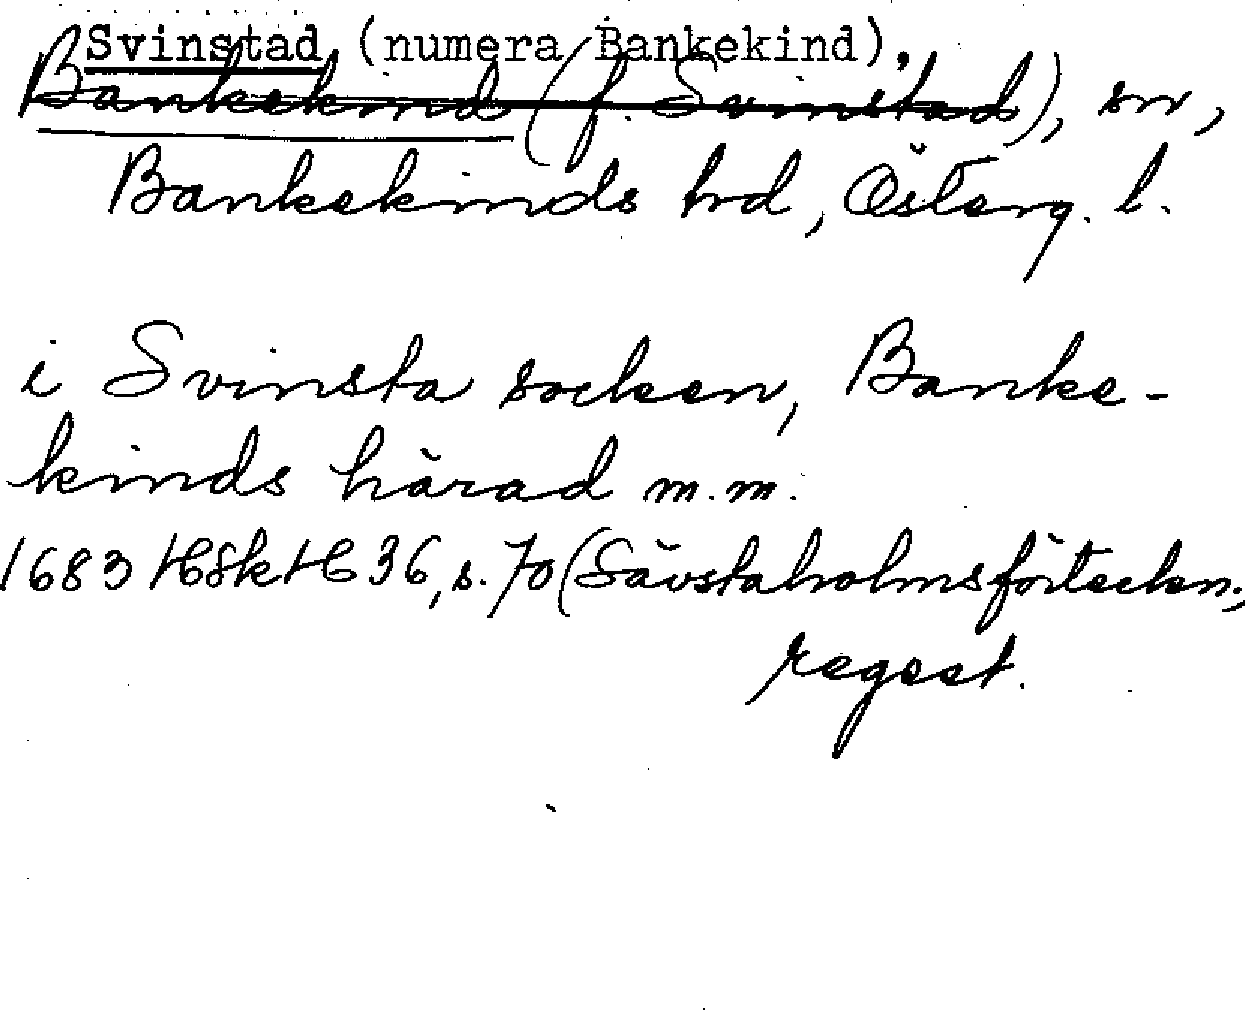 Svinstad (numera Bankekind),
Bankekind (f. Svinstad), sn,
Bankekinds hd, Österg. l.
i Svinsta socken, Banke-
kinds härad m.m.
1683 HSkH 36, s. 70 (Sävstaholmsförteckn.,
regest.